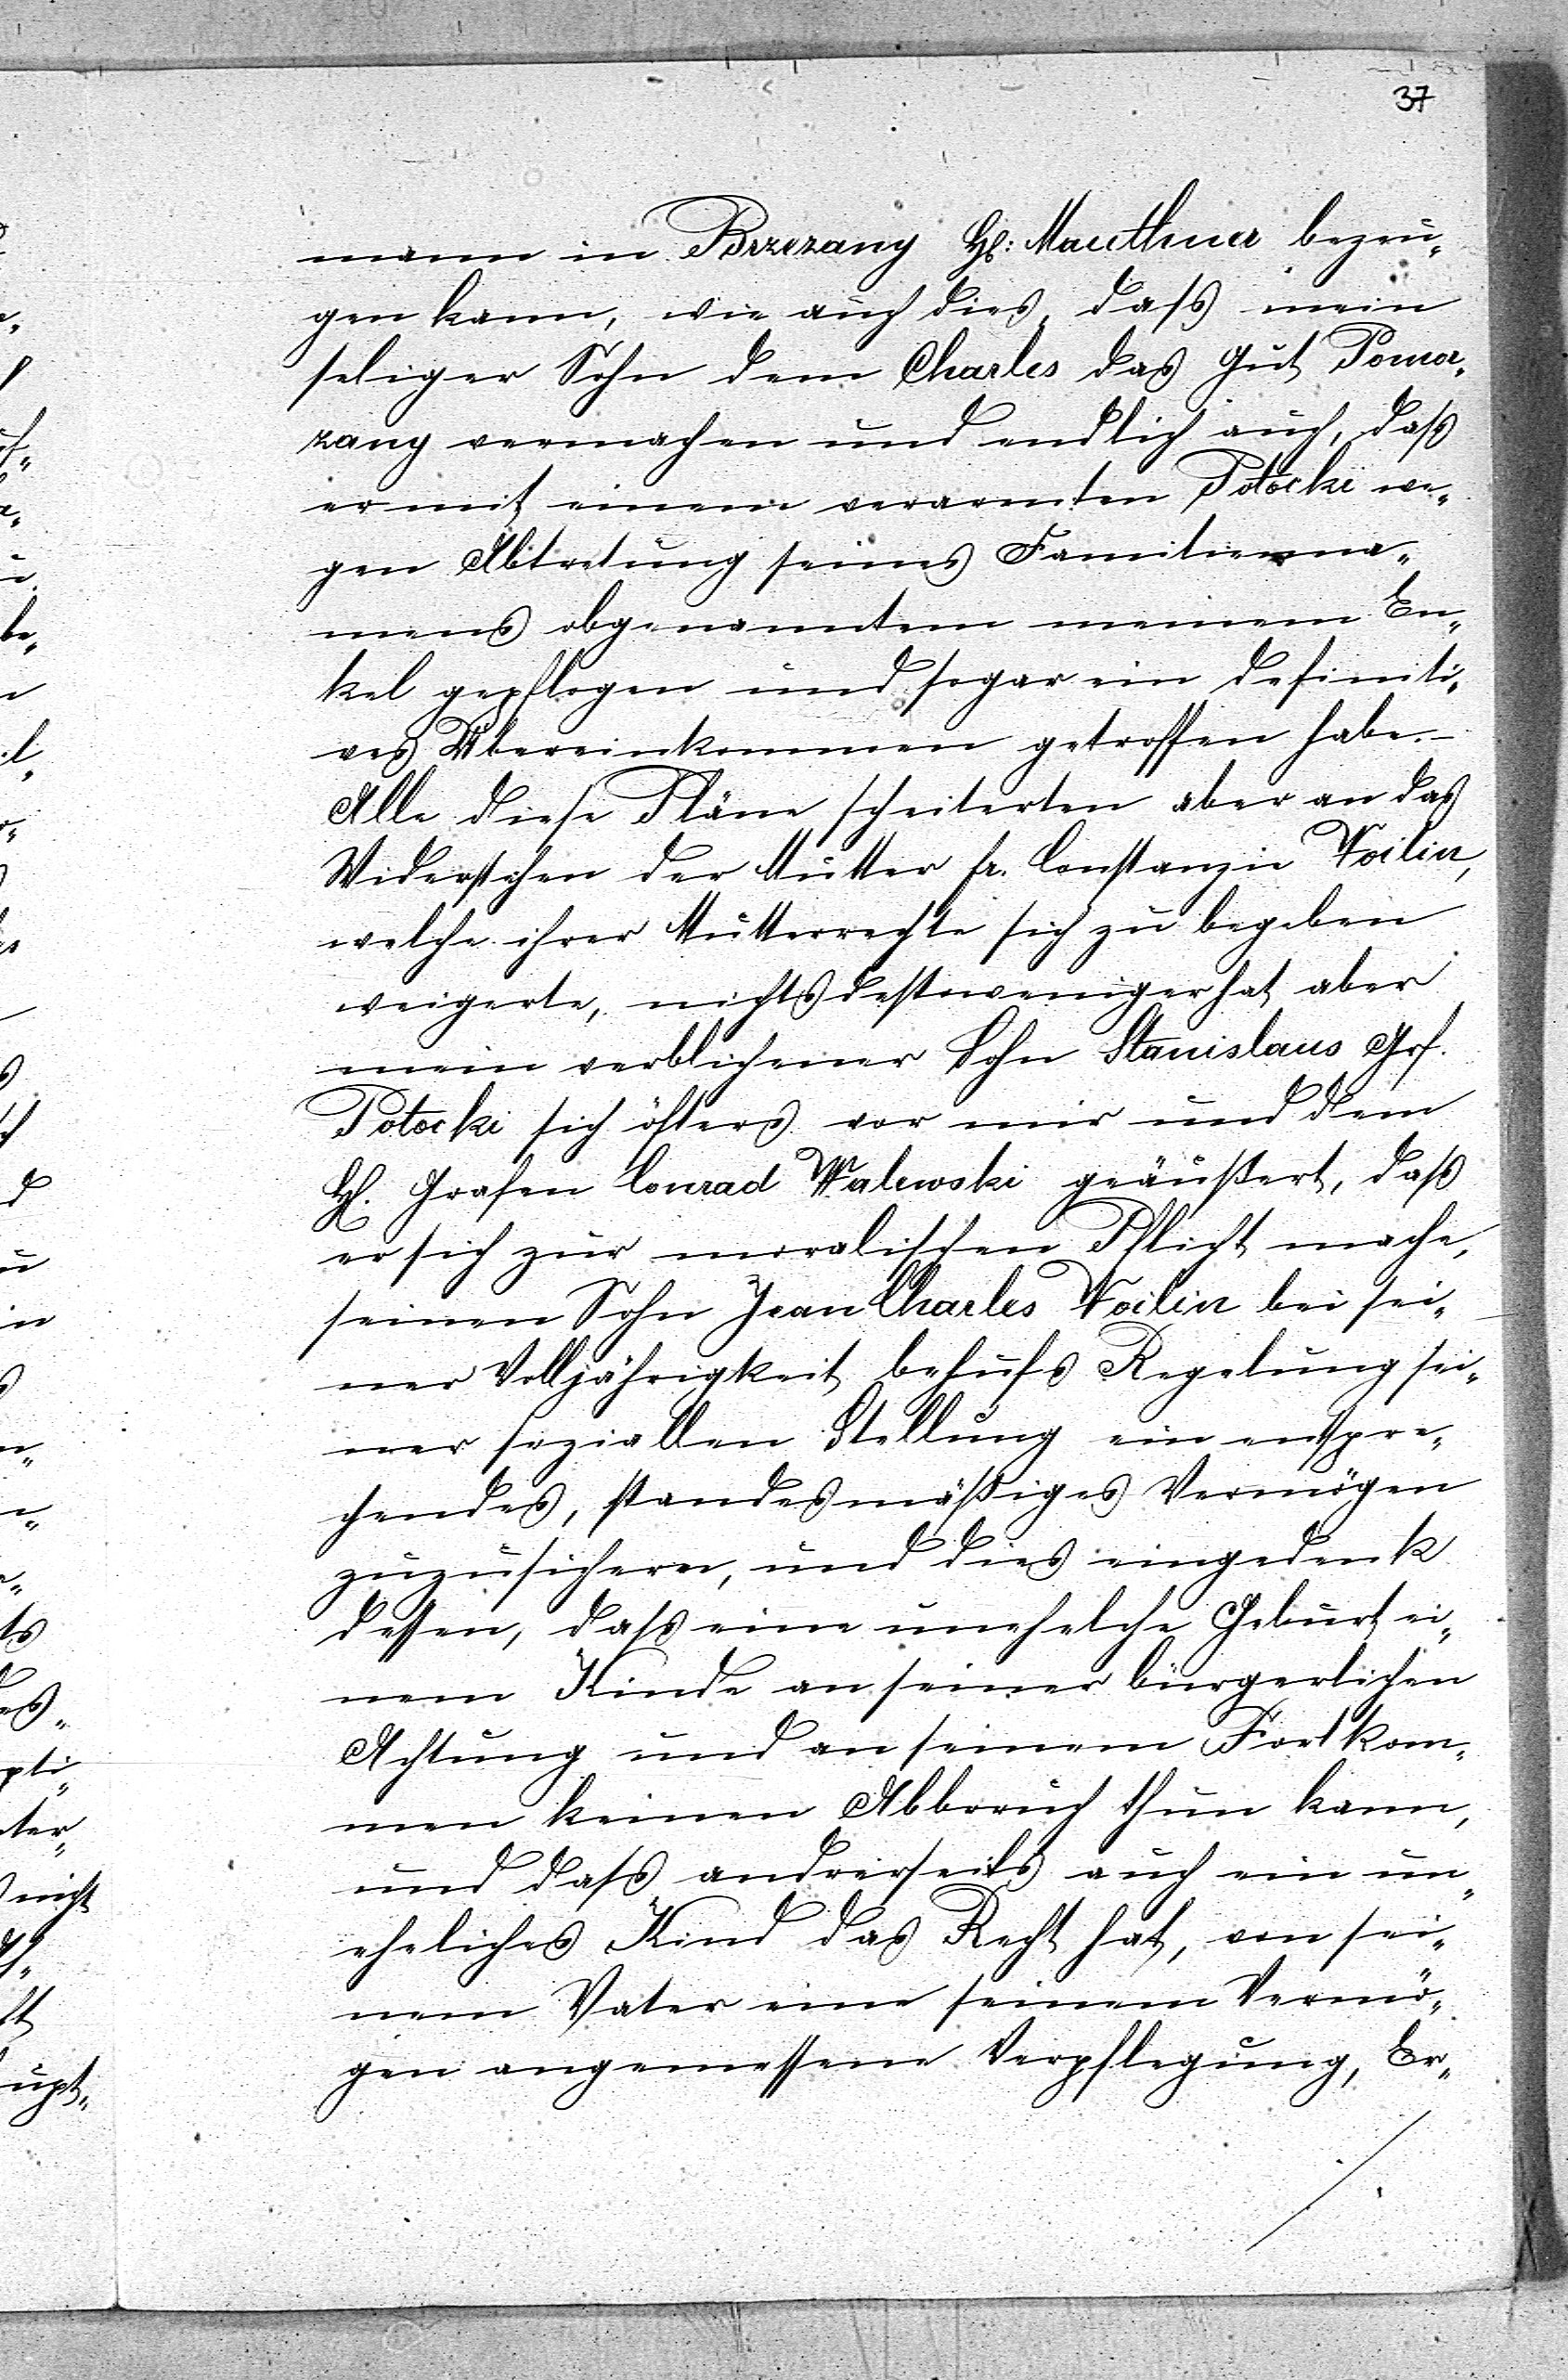 37
mann in Brzezany H: Mauthner bezeu„
gen kann, wie auch dies, daß mein
seliger Sohn dem Charles das Gut Pomor„
zany vermachen und endlich auch, daß
er mit einem verarmten Potocki we„
gen Abtretung seines Familienna„
mens obgenanntem meinem En„
kel gepflogen und sogar ein definiti„
ves Übereinkommen getroffen habe.–
Alle diese Pläne scheiterten aber an das
Widerstehen der Mutter fr. Constanzie Voilin,
welche ihrer Mutterrechte sich zu begeben
weigerte, nichts destoweniger hat aber
mein verblichener Sohn Stanislaus Grf.
Potocki sich öfters vor mir und dem
H. Grafen Conrad Walewski geäußert, daß
er sich zur moralischen Pflicht mache,
seinen Sohn Jean Charles Voilin bei sei„
ner Volljährigkeit behufs Regelung sei„
ner soziallen Stellung ein entspre„
chendes, standesmäßiges Vermögen
zuzusichern, und dies eingedenk
dessen, daß eine unehelche Geburt ei„
nem Kinde an seiner bürgerlichen
Achtung und an seinem Fortkom„
men keinen Abbruch thun kann,
und daß andrerseits auch ein un„
eheliches Kind das Recht hat, von sei„
nem Vater eine seinem Vermö„
gen angemessene Verpflegung, Er„
./.